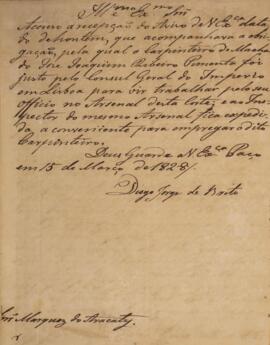 Ill.mo e Ex.mo Snr
Accuso a recepção do Aviso de V. Ex.ca data
do de hontem, que acompanhava a obri
gação, pela qual o Carpenteiro de Macha
do José Joaquim Ribeiro Pimenta foi
justo pelo Consul Geral do Imperio
em Lisboa para vir trabalhar pelo seu
officio no Arsenal desta Corte; e ao Ins
pector do mesmo Arsenal fica expedi
da, a conveniente para empregar o dito
Carpenteiro.
Deus Guarde a V. Ex.ca Paço
em 15 de Março de 1828/
Diogo Jorge de Brito
Snr Marquez do Aracaty.